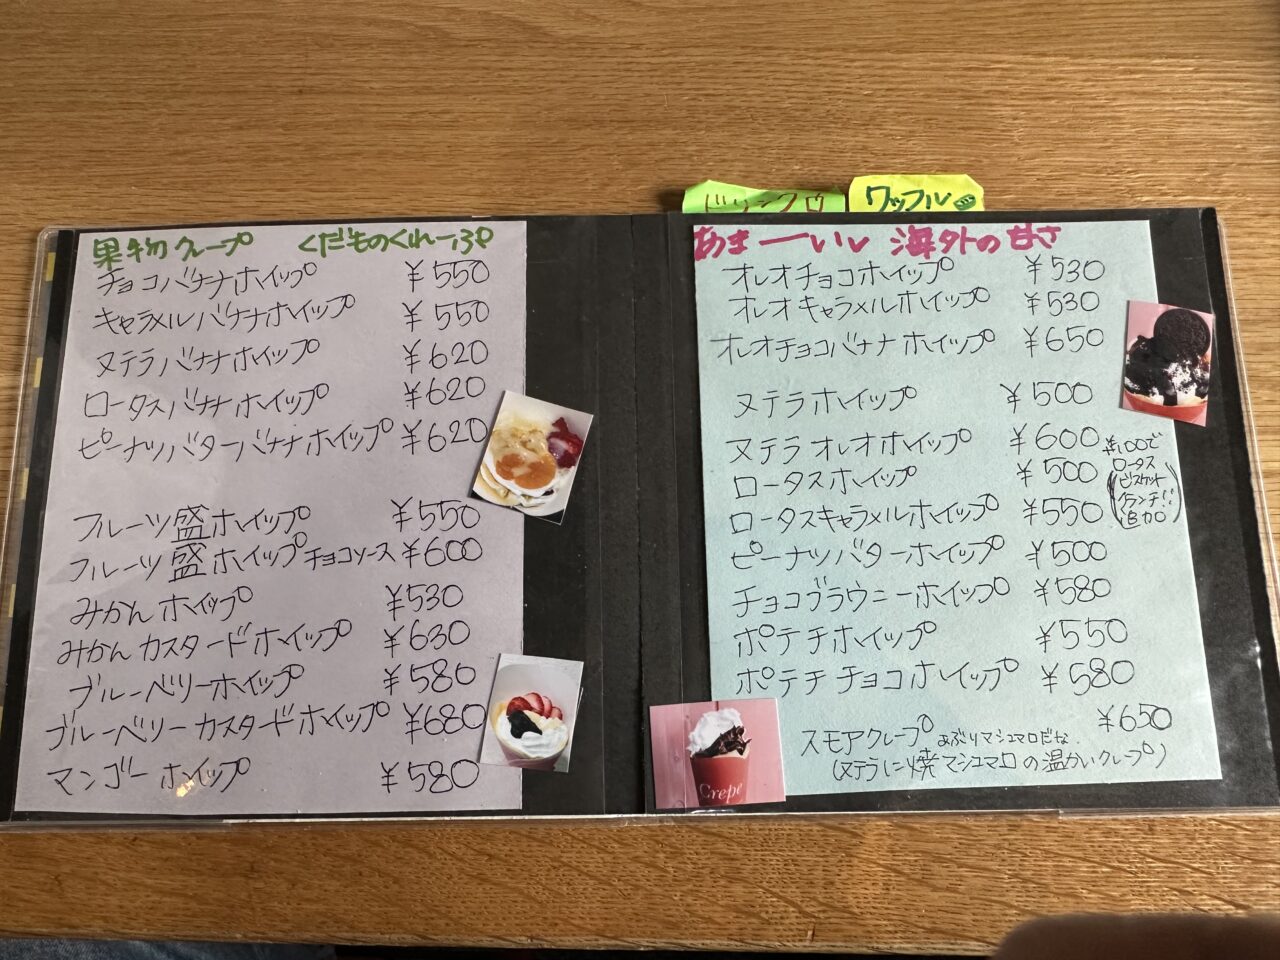 ドリンク
ワッフル
果物クレープ くだものくれーぷ
チョコバナナホイップ ¥550
キャラメルバナナホイップ ¥550
ヌテラバナナホイップ ¥620
ロータスバナナホイップ ¥620
ピーナツバターバナナホイップ ¥620
フルーツ盛ホイップ ¥550
フルーツ盛ホイップチョコソース ¥600
みかんホイップ ¥530
みかんカスタードホイップ ¥630
ブルーベリーホイップ ¥580
ブルーベリーカスタードホイップ ¥680
マンゴーホイップ ¥580
あまーーいい 海外の甘さ
オレオチョコホイップ ¥530
オレオキャラメルホイップ ¥530
オレオチョコバナナホイップ ¥650
ヌテラホイップ ¥500
ヌテラオレオホイップ ¥600
ロータスホイップ ¥500
ロータスキャラメルホイップ ¥550
¥100で
ロータス
(ビスケット
クランチ!!
追加)
ピーナツバターホイップ ¥500
チョコブラウニーホイップ ¥580
ポテチホイップ ¥550
ポテチチョコホイップ ¥580
スモアクレープ ¥650
あぶりマシュマロだな
(ヌテラに焼マシュマロの温かいクレープ)
Crepe